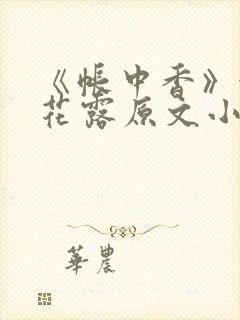 《帐中香》
花露原文小
华农